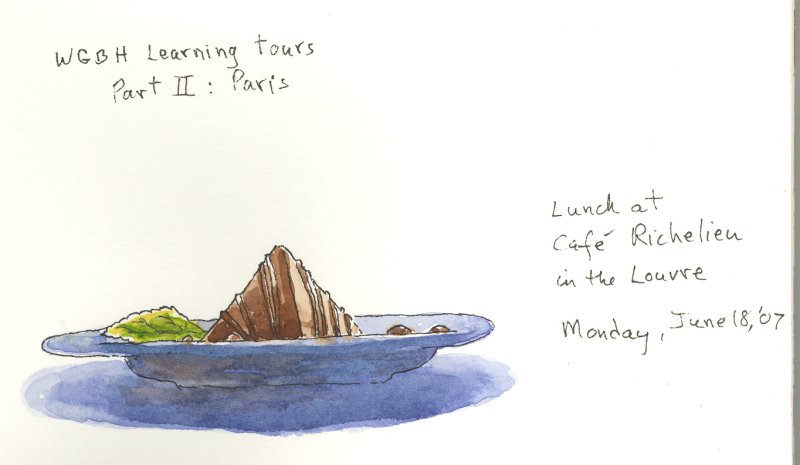 WGBH Learning tours
Part II : Paris
Lunch at
Café Richelieu
in the Louvre
Monday, June 18, '07